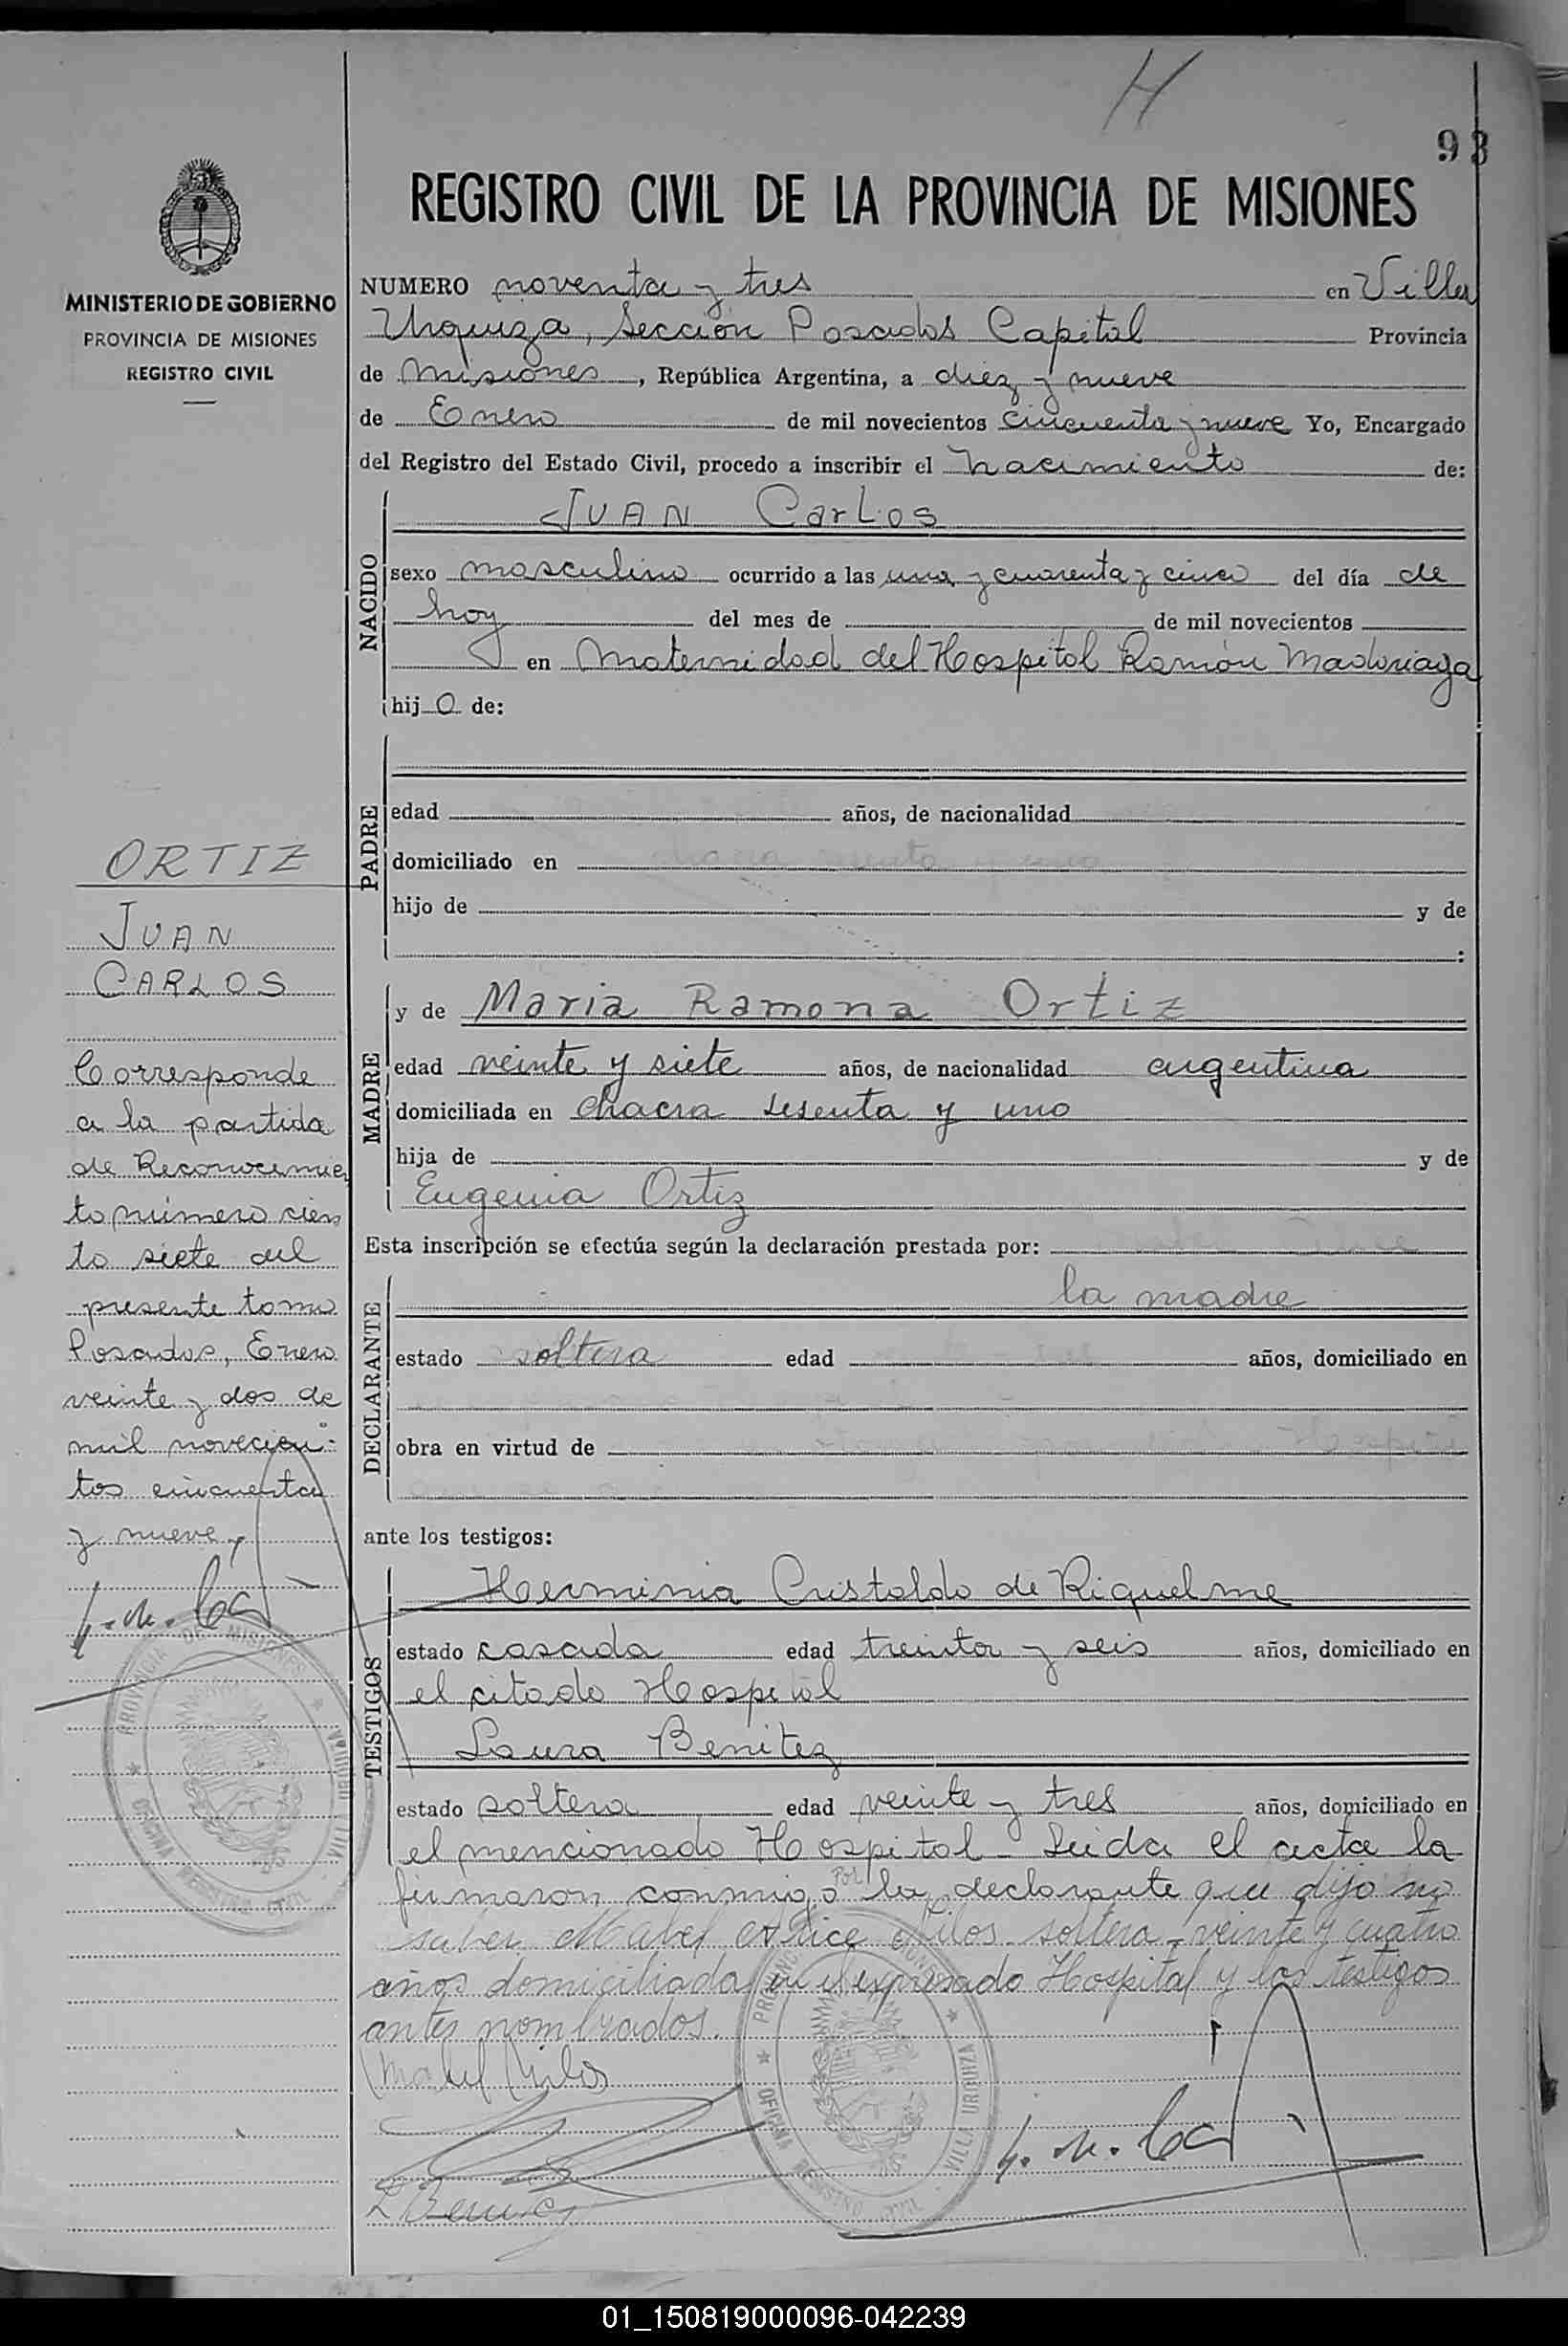 H
93
REGISTRO CIVIL DE LA PROVINCIA DE MISIONES
MINISTERIO DE GOBIERNO
PROVINCIA DE MISIONES
REGISTRO CIVIL
NUMERO noventa y tres en Villa
Urquiza, Sección Posadas Capital Provincia
de Misiones, República Argentina, a diez y nueve
de Enero de mil novecientos cincuenta y nueve Yo, Encargado
del Registro del Estado Civil, procedo a inscribir el nacimiento de:
NACIDO
JUAN Carlos
sexo masculino ocurrido a las una y cuarenta y cinco del día de
hoy del mes de de mil novecientos
en Maternidad del Hospital Ramón Madariaga
hijo de:
PADRE
edad años, de nacionalidad
domiciliado en
hijo de y de
:
MADRE
y de Maria Ramona Ortiz
edad veinte y siete años, de nacionalidad argentina
domiciliada en chacra sesenta y uno
hija de y de
Eugenia Ortiz
Esta inscripción se efectúa según la declaración prestada por:
DECLARANTE
la madre
estado soltera edad años, domiciliado en
obra en virtud de
ante los testigos:
TESTIGOS
Herminia Cristaldo de Riquelme
estado casada edad treinta y seis años, domiciliado en
el citado Hospital
Laura Benitez
estado soltera edad veinte y tres años, domiciliado en
el mencionado Hospital - Leida el acta la
firmaron conmigo por la declarante que dijo no
saber Mabel soltera - veinte y cuatro
años domiciliada en el expresado Hospital y los testigos
antes nombrados.
Mabel
L Benitez
ORTIZ
JUAN
CARLOS
Corresponde
a la partida
de Reconocimien
to número cien
to siete del
presente tomo
Posadas, Enero
veinte y dos de
mil novecien-
tos cincuenta
y nueve
PROVINCIA DE MISIONES
OFICINA REGISTRO CIVIL - VILLA URQUIZA
PROVINCIA DE MISIONES
OFICINA REGISTRO CIVIL - VILLA URQUIZA
01_150819000096-042239